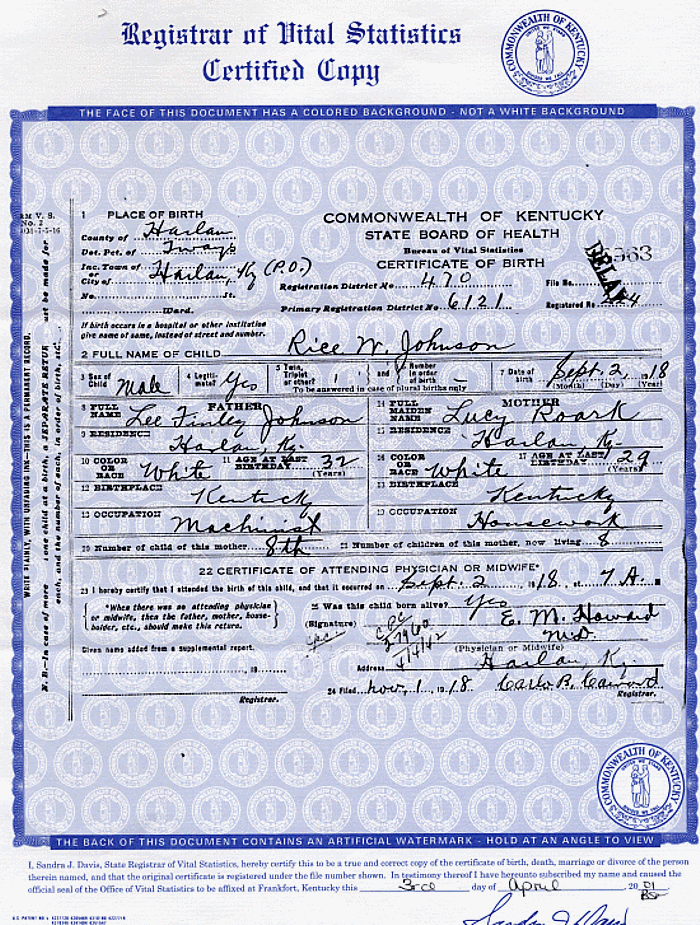 Registrar of Vital Statistics
Certified Copy
COMMONWEALTH OF KENTUCKY
THE FACE OF THIS DOCUMENT HAS A COLORED BACKGROUND - NOT A WHITE BACKGROUND
1 PLACE OF BIRTH
County of Harlan
Vot. Pct. of Tways
Inc. Town of
or Harlan, Ky (P.O.)
City of
No. St.
Ward.
If birth occurs in a hospital or other institution
give name of same, instead of street and number.
COMMONWEALTH OF KENTUCKY
STATE BOARD OF HEALTH
Bureau of Vital Statistics
CERTIFICATE OF BIRTH
Registration District No. 470
File No.
Primary Registration District No. 6121
Registered No.
2 FULL NAME OF CHILD Rice W. Johnson
3 Sex of Child Male
4 Legitimate? Yes
5 Twin, Triplet or other?
and Number in order of birth
To be answered in case of plural births only
7 Date of birth Sept. 2, 1918
(Month) (Day) (Year)
FATHER
8 FULL NAME Lee Finley Johnson
9 RESIDENCE Harlan, Ky.
10 COLOR OR RACE White
11 AGE AT LAST BIRTHDAY 32 (Years)
12 BIRTHPLACE Kentucky
13 OCCUPATION Machinist
MOTHER
14 FULL MAIDEN NAME Lucy Roark
15 RESIDENCE Harlan, Ky.
16 COLOR OR RACE White
17 AGE AT LAST BIRTHDAY 29 (Years)
BIRTHPLACE Kentucky
OCCUPATION Housework
20 Number of child of this mother 8th
21 Number of children of this mother, now living 8
22 CERTIFICATE OF ATTENDING PHYSICIAN OR MIDWIFE*
23 I hereby certify that I attended the birth of this child, and that it occurred on Sept. 2, 1918, at 7 A. M
*When there was no attending physician
or midwife, then the father, mother, house-
holder, etc., should make this return.
Was this child born alive? Yes
(Signature) E. M. Howard
M.D.
(Physician or Midwife)
CPC
CPC
27960
4/14/42
Given name added from a supplemental report.
, 19
Registrar.
Address Harlan, Ky
24 Filed Nov. 1, 1918
Registrar.
WRITE PLAINLY, WITH UNFADING INK—THIS IS A PERMANENT RECORD.
COMMONWEALTH OF KENTUCKY
THE BACK OF THIS DOCUMENT CONTAINS AN ARTIFICIAL WATERMARK - HOLD AT AN ANGLE TO VIEW
I, Sandra J. Davis, State Registrar of Vital Statistics, hereby certify this to be a true and correct copy of the certificate of birth, death, marriage or divorce of the person
therein named, and that the original certificate is registered under the file number shown. In testimony thereof I have hereunto subscribed my name and caused the
official seal of the Office of Vital Statistics to be affixed at Frankfort, Kentucky this 3rd day of April, 20 01